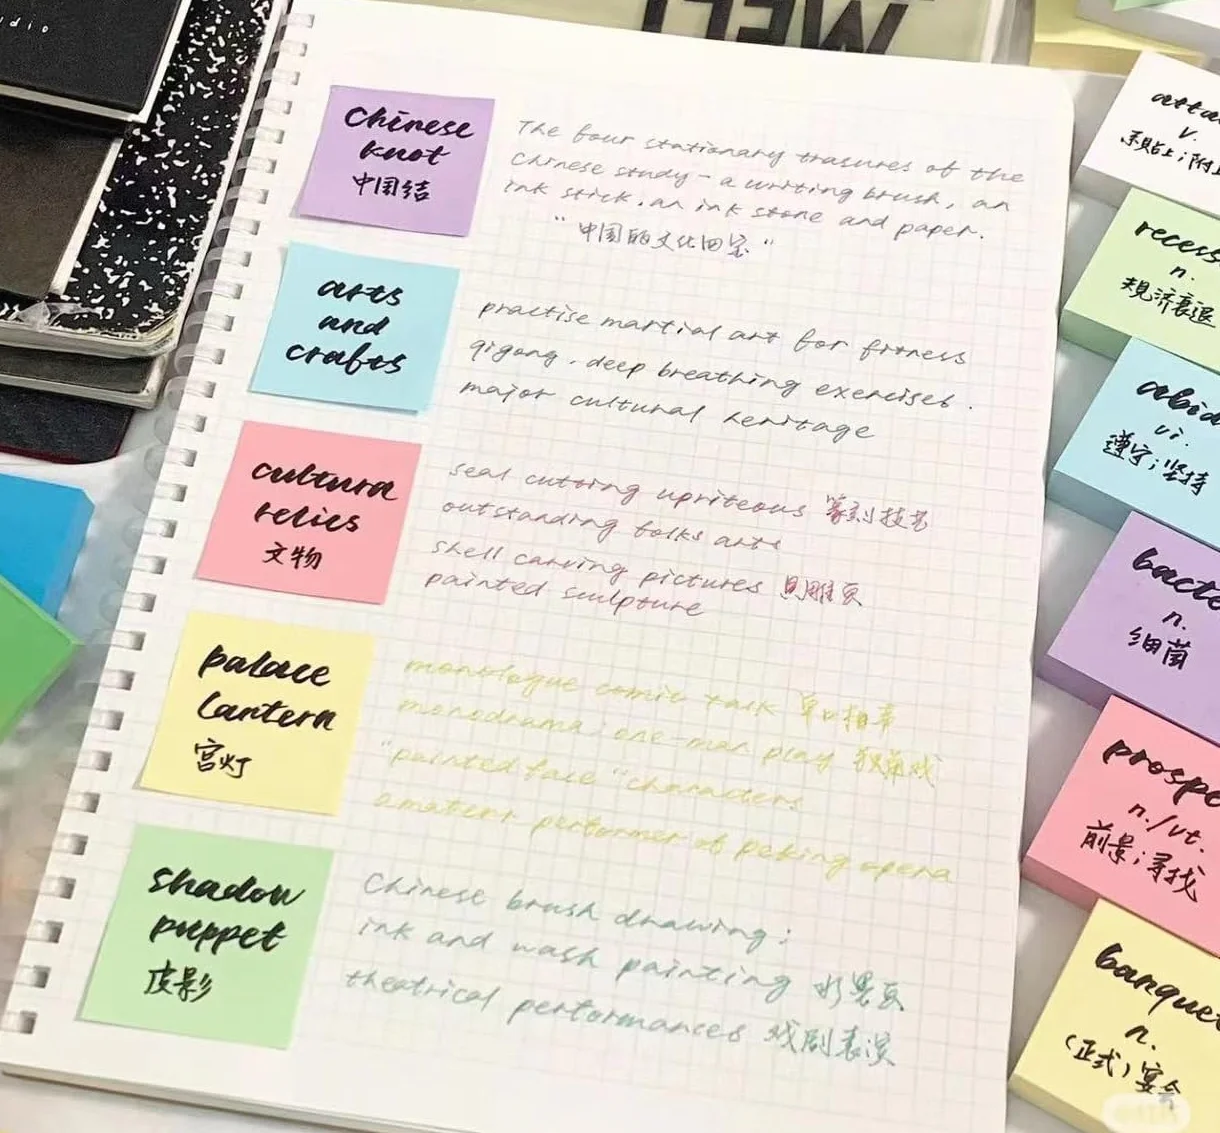 udio
Chinese
knot
中国结
The four stationary trasures of the
Chinese study - a writing brush, an
ink stick, an ink stone and paper.
"中国的文化四宝"
arts
and
crafts
practise martial art for fitness
qigong, deep breathing exercises.
major cultural heritage
cultural
relics
文物
seal cutting upriteous 篆刻技艺
outstanding folks arts
shell carving pictures 贝雕页
painted sculpture
palace
lantern
宫灯
monologue comic talk 单口相声
monodrama; one-man play 独角戏
"painted face" characters
amateur performer of peking opera
shadow
puppet
皮影
Chinese brush drawing;
ink and wash painting 水墨页
theatrical performances 戏剧表演
atta
v.
系贴上;附上
recess
n.
规济衰退
abid
vi.
遵守;坚持
bacte
n.
细菌
prospe
n./vt.
前景;寻找
banquet
n.
(正式)宴会